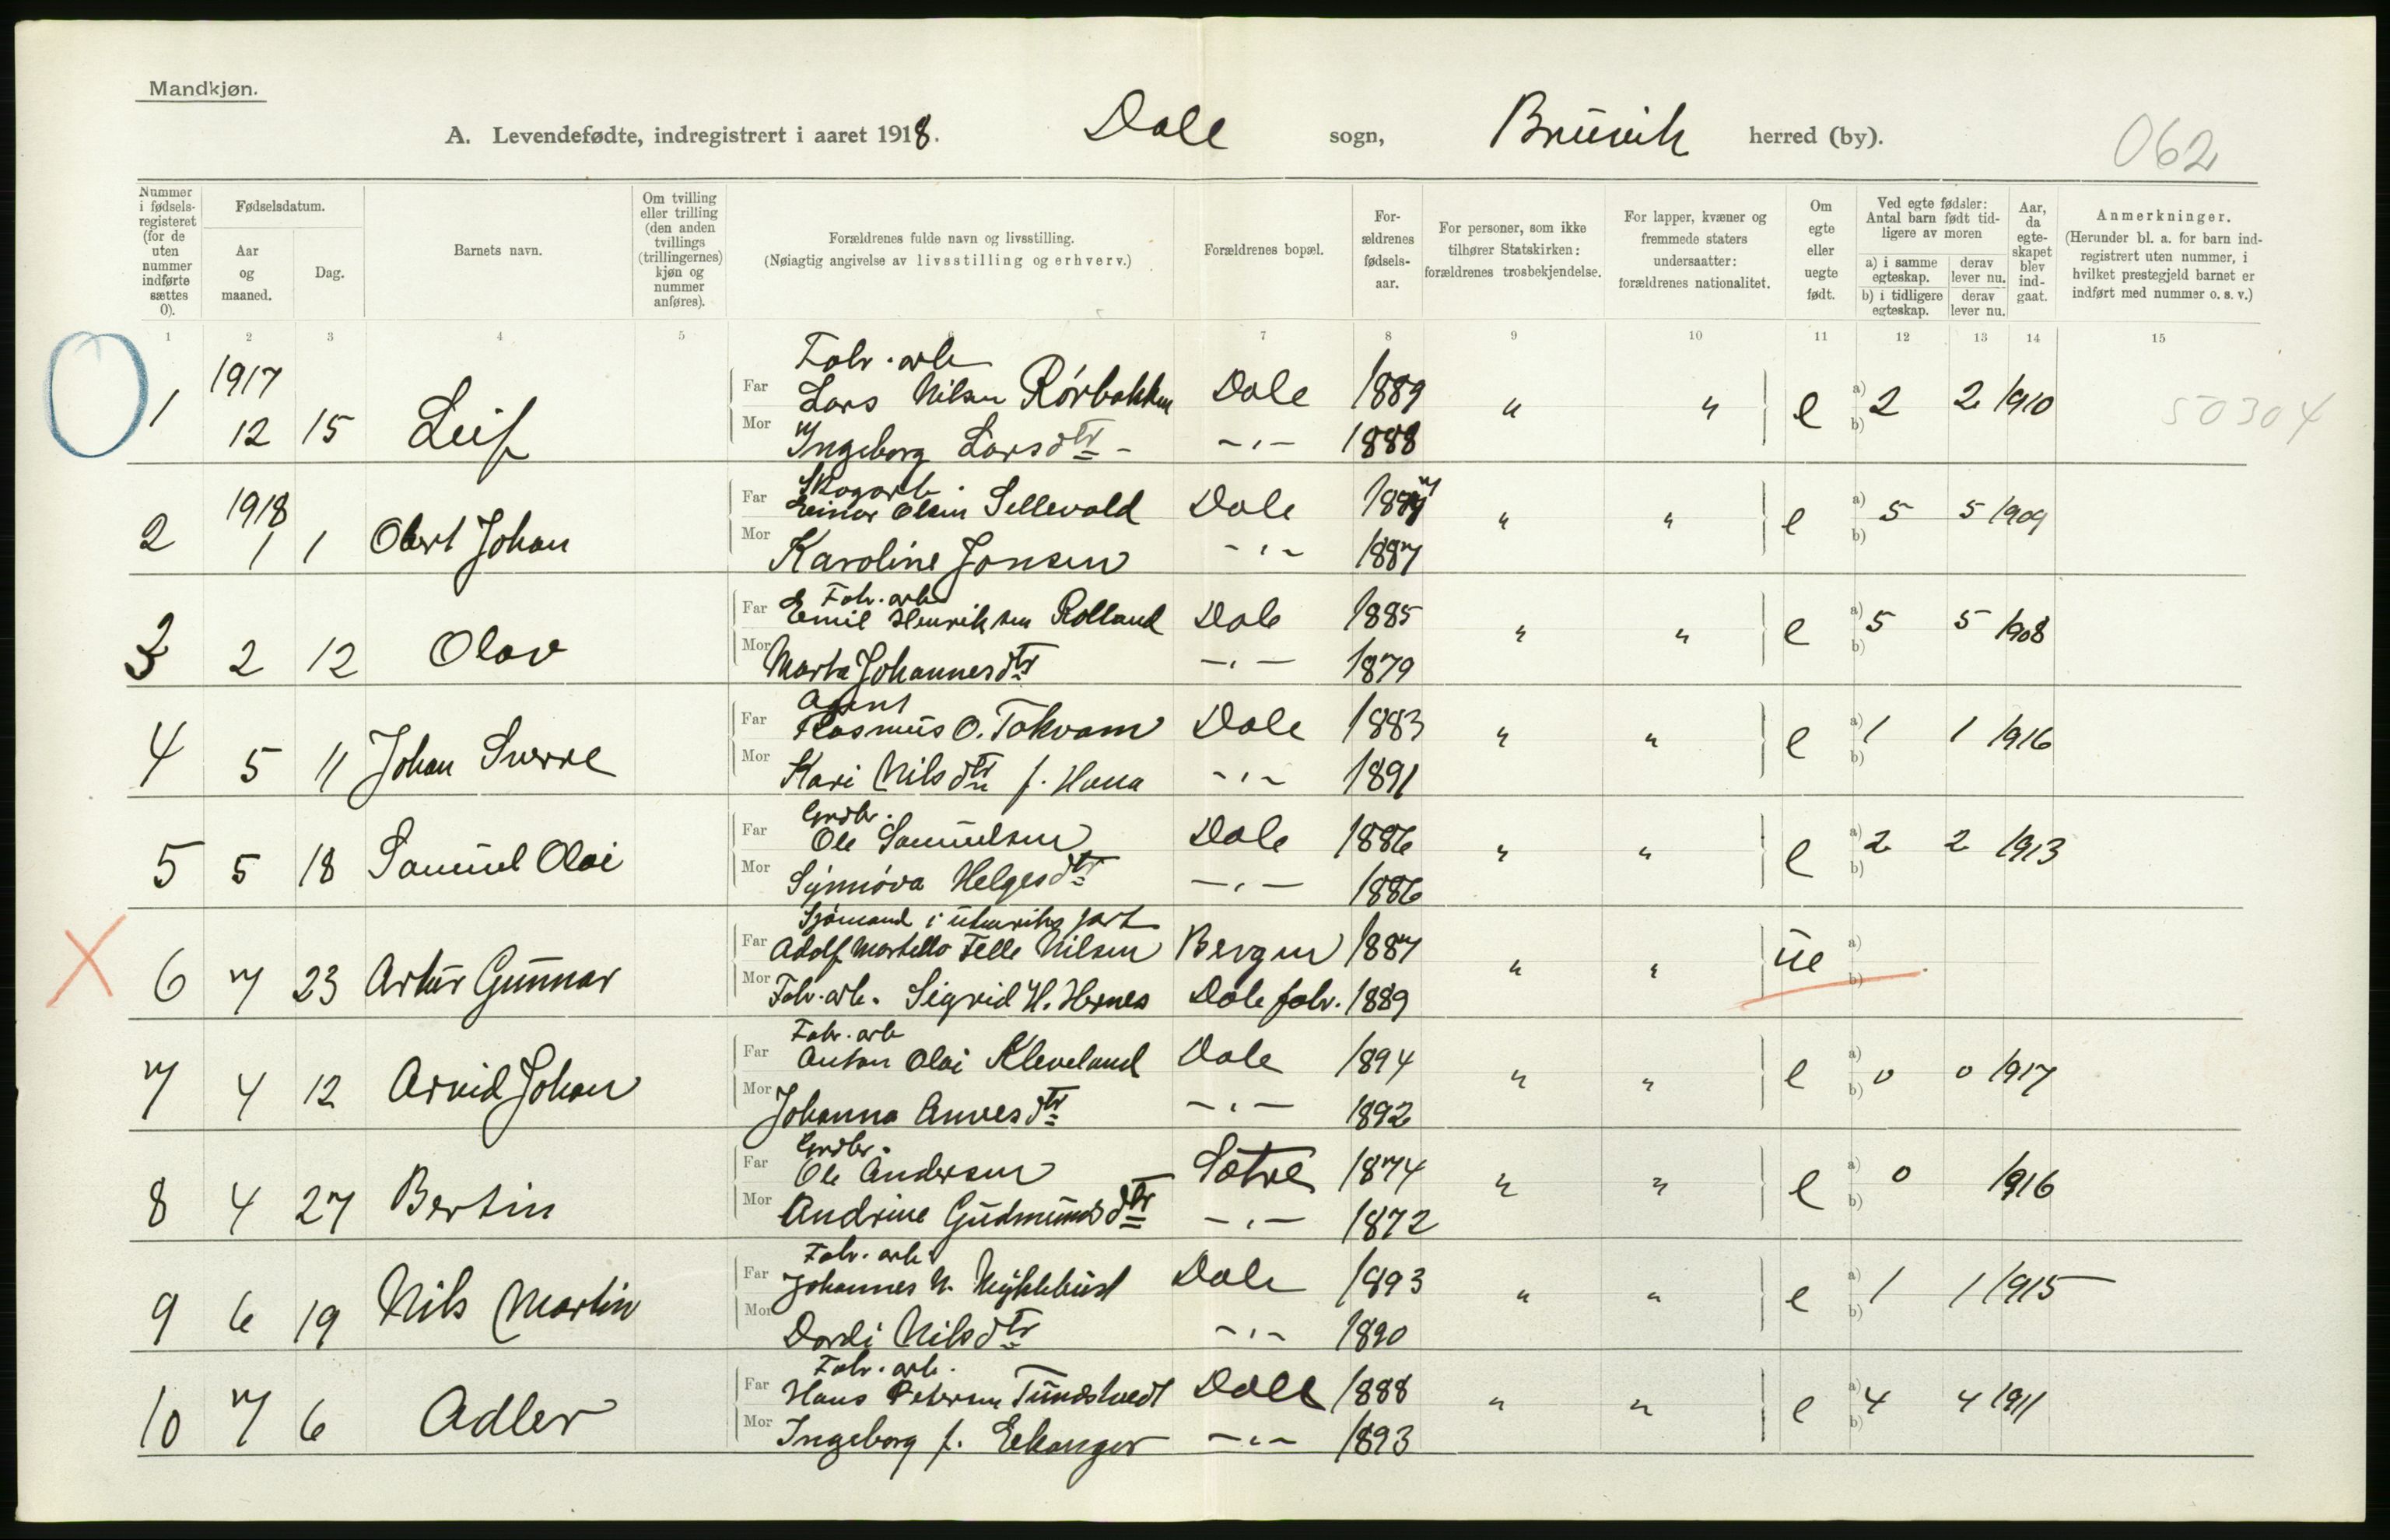 Mandkjøn.
A. Levendefødte, indregistrert i aaret 1918. Dale sogn, Bruvik herred (by).
062
Nummer i fødsels-registeret (for de uten nummer indførte sættes 0).
Fødselsdatum.
Aar og maaned.
Dag.
Barnets navn.
Om tvilling eller trilling (den anden tvillings (trillingernes) kjøn og nummer anføres).
Forældrenes fulde navn og livsstilling.
(Nøiagtig angivelse av livsstilling og erhverv.)
Forældrenes bopæl.
For-ældrenes fødsels-aar.
For personer, som ikke tilhører Statskirken: forældrenes trosbekjendelse.
For lapper, kvæner og fremmede staters undersaatter: forældrenes nationalitet.
Om egte eller uegte født.
Ved egte fødsler: Antal barn født tid-ligere av moren
a) i samme egteskap. derav lever nu.
b) i tidligere egteskap. derav lever nu.
Aar, da egte-skapet blev ind-gaat.
Anmerkninger.
(Herunder bl. a. for barn ind-registrert uten nummer, i hvilket prestegjeld barnet er indført med nummer o. s. v.)
1 2 3 4 5 6 7 8 9 10 11 12 13 14 15
Fabr. arb
1 1917 12 15 Leif Far Lars Nilsen Rörbakken Dale 1889 " " e a) 2 2 1910 50304
Mor Ingeborg Larsdtr - -"- 1888 b)
Skogarb.
2 1918 1 1 Obert Johan Far Einar Olsen Sellevold Dale " " e a) 5 5 1909
Mor Karoline Jonsen -"- 1887 b)
Fabr. arb
3 2 12 Olav Far Emil Henriksen Rolland Dale 1885 " " e a) 5 5 1908
Mor Marta Johannesdtr -"- 1879 b)
Agent
4 5 11 Johan Sverre Far Rasmus O. Tokvam Dale 1883 " " e a) 1 1 1916
Mor Kari Nilsdtr f. -"- 1891 b)
Grdbr.
5 5 18 Samuel Olai Far Ole Samuelsen Dale 1886 " " e a) 2 2 1913
Mor Synnöva Helgesdtr -"- 1886 b)
Sjömand i utenriks fart
6 7 23 Artur Gunnar Far Adolf Martello Felle Nilsen Bergen 1887 " " ue a)
Mor Fabr. arb. Sigrid H. Hernes Dale fabr. 1889 b)
Fabr. arb
7 4 12 Arvid Johan Far Anton Olai Kleveland Dale 1894 " " e a) 0 0 1917
Mor Johanna dtr -"- 1892 b)
Grdbr.
8 4 27 Bertin Far Ole Andersen Sætre 1874 " " e a) 0 1916
Mor Andrine Gudmundsdtr -"- 1872 b)
Fabr. arb
9 6 19 Nils Martin Far Johannes N. Myklebust Dale 1893 " " e a) 1 1 1915
Mor Dordi Nilsdtr -"- 1890 b)
Fabr. arb.
10 7 6 Adler Far Hans Petersen Dale 1888 " " e a) 4 4 1911
Mor Ingeborg f. Eikanger -"- 1893 b)